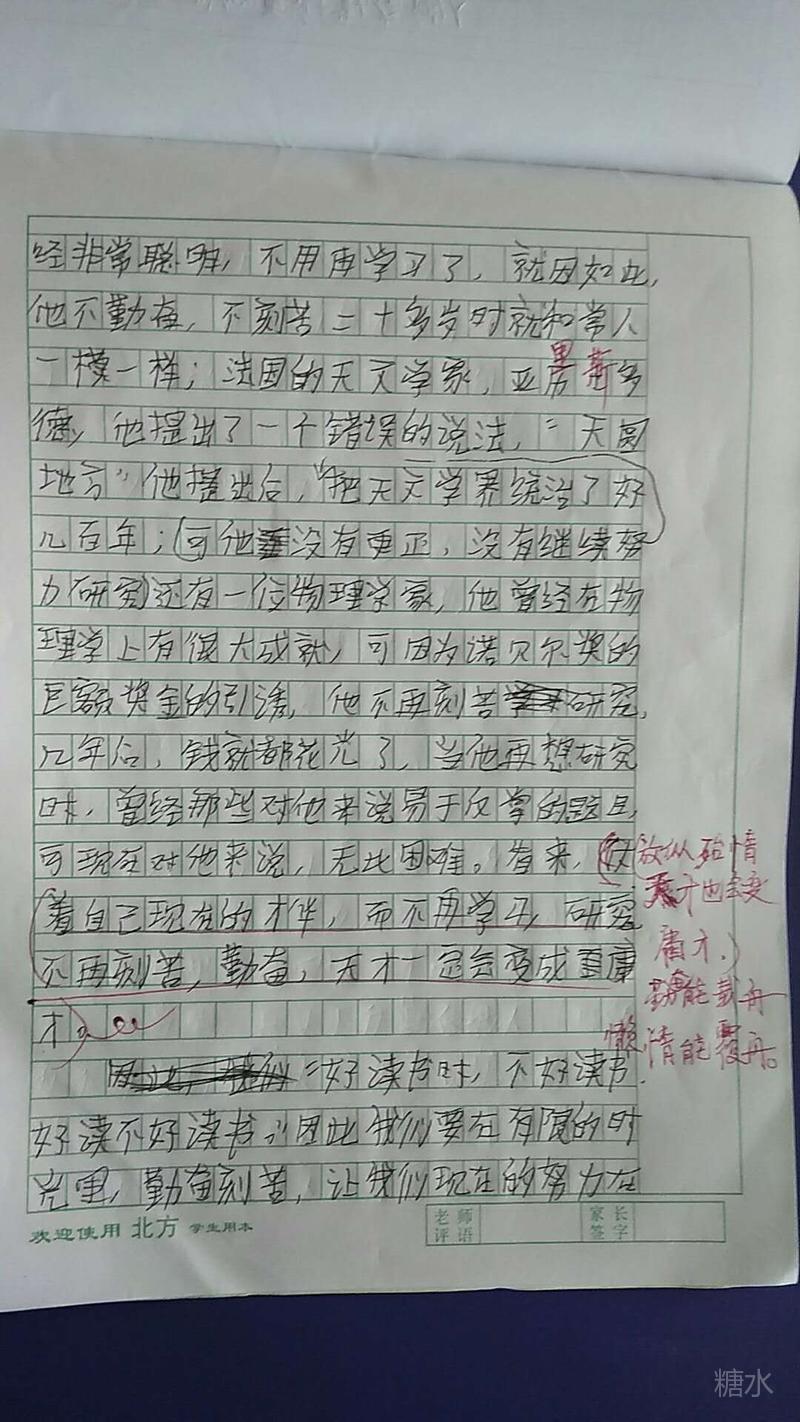 经非常聪明，不用再学习了，就因如此，
他不勤奋，不刻苦二十多岁时就和常人
一模一样；法国的天文学家，亚房多
里斯
德，他提出了一个错误的说法，“天圆
地方”他提出后，把天文学界统治了好
几百年；可他没有更正，没有继续努
力研究还有一位物理学家，他曾经在物
理学上有很大成就，可因为诺贝尔奖的
巨额奖金的引诱，他不再刻苦研究，
几年后，钱就都花光了，当他再想研究
时，曾经那些对他来说易于反掌的题目，
可现在对他来说，无比困难。看来，仗
着自己现在的才华，而不再学习，研究
不再刻苦，勤奋，天才一定会变成庸
才。
天才也会变
庸才。
勤能载舟
懒惰能覆舟。
“好读书时，不好读书，
好读不好读书。”因此我们要在有限的时
光里，勤奋刻苦，让我们现在的努力在
欢迎使用 北方 学生用本
老师评语
家长签字
糖水